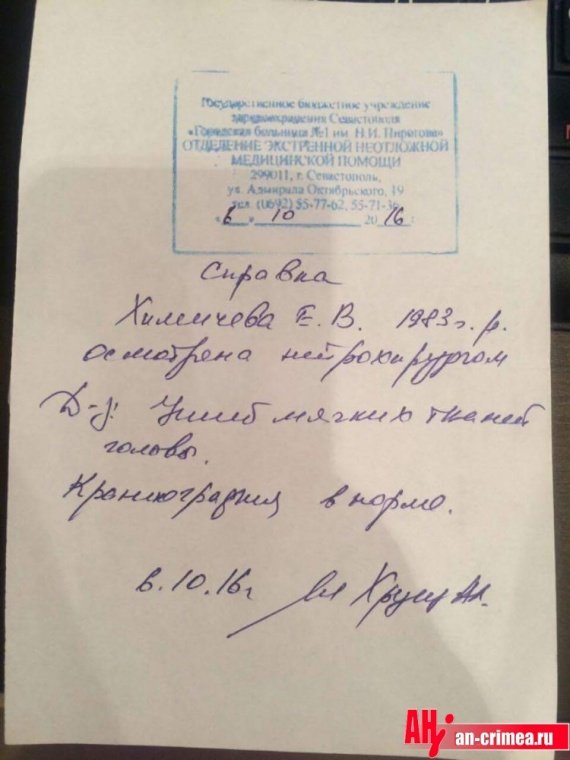 Государственное бюджетное учреждение
здравоохранения Севастополя
«Городская больница №1 им. Н.И. Пирогова»
ОТДЕЛЕНИЕ ЭКСТРЕННОЙ НЕОТЛОЖНОЙ
МЕДИЦИНСКОЙ ПОМОЩИ
299011, г. Севастополь,
ул. Адмирала Октябрьского, 19
тел. (0692) 55-77-62, 55-71-36
«6» 10 2016 г
Справка
Химичева Е. В. 1983 г. р.
осмотрена нейрохирургом
Д-з: Ушиб мягких тканей
головы.
Краниография в норме.
6.10.16г
АНК
an-crimea.ru